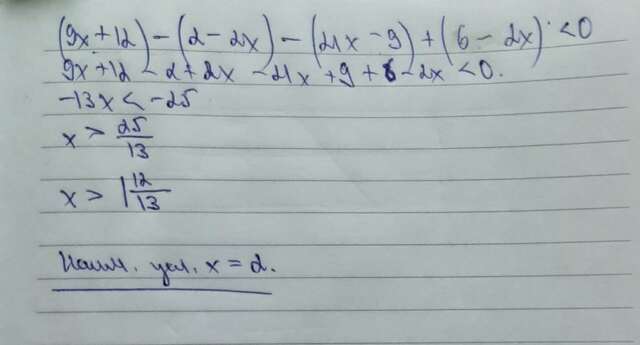 (9x+12) - (2-2x) - (21x-9) + (6-2x) < 0
9x+12 - 2 + 2x - 21x + 9 + 6 - 2x < 0.
-13x < -25
x > 25/13
x > 1 12/13
Наим. цел. x = 2.